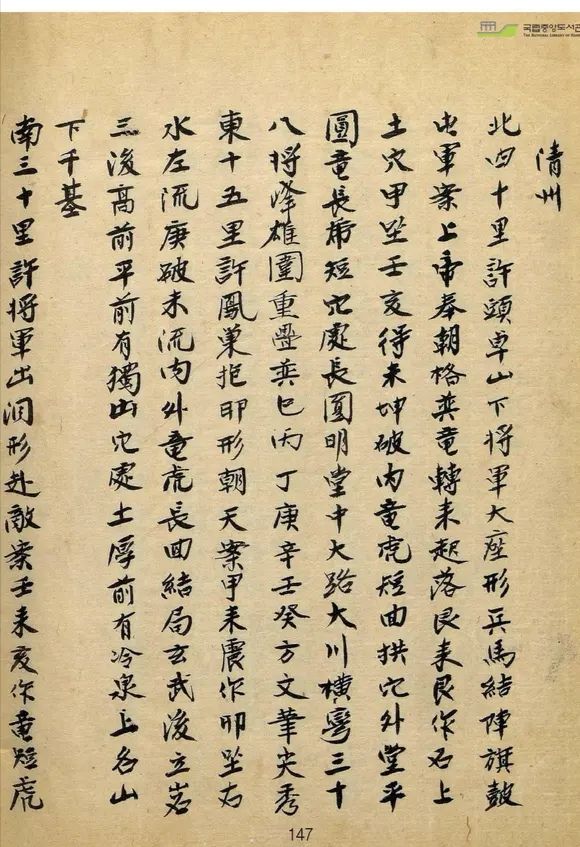 국립중앙도서관
THE NATIONAL LIBRARY OF KOREA
清州
北四十里許頭卓山下将軍大座形兵馬結陣旗鼓
出軍案上帝奉朝格巽竜轉未起落艮来艮作右上
土穴甲坐壬亥得未坤破内竜虎短曲拱穴外堂平
圓竜長虎短穴處長圓明堂中大路大川橫彎三十
八将峰雄圍重疊巽巳丙丁庚辛壬癸方文筆尖秀
東十五里許鳳巣抱卵形朝天案甲来震作卯坐右
水左流庚破未流内外竜虎長回結局玄武後立岩
三後高前平前有獨山穴處土厚前有冷泉上名山
下千基
南三十里許将軍出洞形赴敵案壬来亥作竜短虎
147